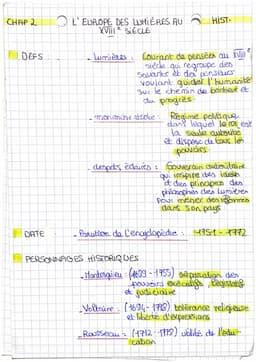 CHAP 2 L'EUROPE DES LUMIÈRES AU HIST.
XVIIIe SIÈCLE
DEFS - Lumières : Courant de pensées au XVIIIe
siècle qui regroupe des
savants et des penseurs
voulant guider l'humanité
sur le chemin du bonheur et
du progrès
- monarchie absolue : Régime politique
dans lequel le roi est
la seule autorité
et dispose de tous les
pouvoirs
- despote éclairé : Souverain autoritaire
qui inspire des idées
et des principes des
philosophes des Lumières
pour mener des réformes
dans son pays
DATE - Parution de l'encyclopédie : 1751 - 1772
PERSONNAGES HISTORIQUES
- Montesquieu : (1689 - 1755) séparation des
pouvoirs exécutifs, législatif
et judiciaire
- Voltaire : (1694 - 1778) tolérance religieuse
et liberté d'expressions
- Rousseau : (1712 - 1778) utilité de l'édu-
cation